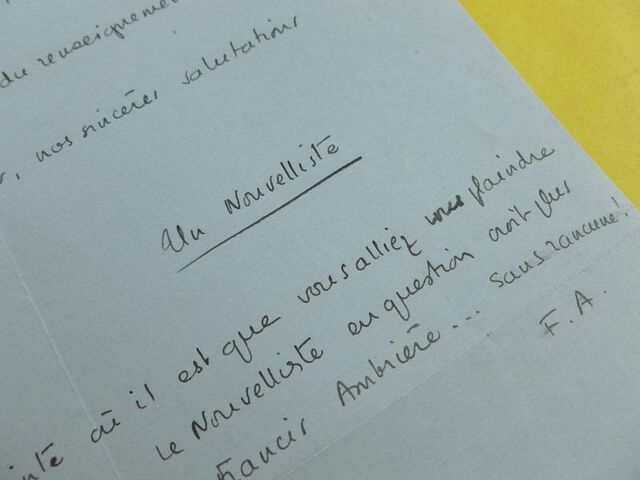 du renseignement
, nos sincères salutations
Un Nouvelliste
où il est que vous alliez vous plaindre
le Nouvelliste en question soit plus
Francis Ambrière... sans rancune!
F.A.